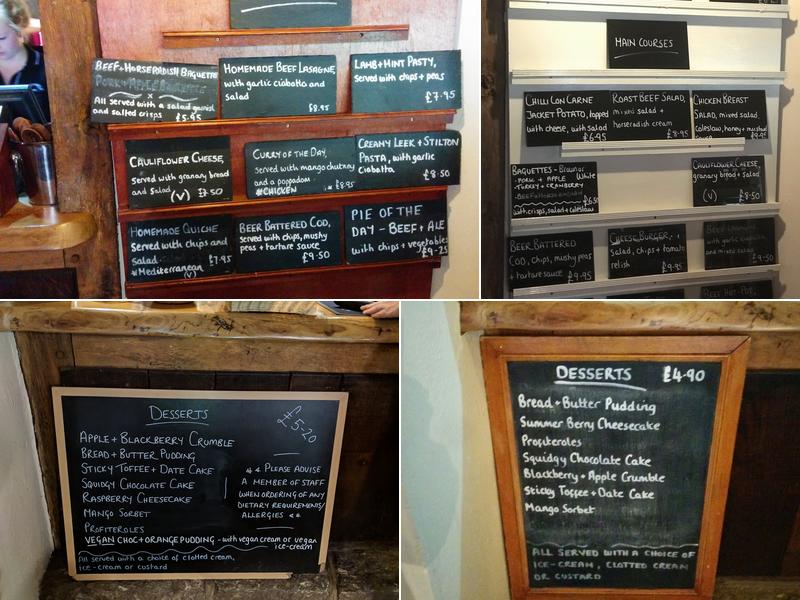 BEEF + HORSERADISH BAGUETTE
PORK + APPLE BAGUETTE
All served with a salad garnish
and salted crisps £5.95
HOMEMADE BEEF LASAGNE,
with garlic ciabatta and
salad £8.95
LAMB + MINT PASTY,
served with chips + peas
£7.95
CAULIFLOWER CHEESE,
served with granary bread
and salad (V) £7.50
CURRY OF THE DAY,
served with mango chutney
and a poppadom
*CHICKEN £8.95
CREAMY LEEK + STILTON
PASTA, with garlic
ciabatta £8.50
HOMEMADE QUICHE
Served with chips and
salad £7.95
*Mediterranean (V)
BEER BATTERED COD,
served with chips, mushy
peas + tartare sauce
£9.50
PIE OF THE
DAY - BEEF + ALE
with chips + vegetables
£9.25
MAIN COURSES
CHILLI CON CARNE
JACKET POTATO, topped
with cheese, with salad
£6.95
ROAST BEEF SALAD,
mixed salad +
horseradish cream
£8.95
CHICKEN BREAST
SALAD, mixed salad,
coleslaw, honey + mustard
BAGUETTES - Brown or White
- PORK + APPLE
- TURKEY + CRANBERRY
with crisps, salad + coleslaw
CAULIFLOWER CHEESE,
granary bread + salad
(V) £8.50
BEER BATTERED
COD, chips, mushy peas
+ tartare sauce £9.95
CHEESEBURGER,
salad, chips + tomato
relish £9.95
with garlic ciabatta
and mixed salad £9.50
DESSERTS
£5-20
APPLE + BLACKBERRY CRUMBLE
BREAD + BUTTER PUDDING
STICKY TOFFEE + DATE CAKE
SQUIDGY CHOCOLATE CAKE
RASPBERRY CHEESECAKE
MANGO SORBET
PROFITEROLES
VEGAN CHOC + ORANGE PUDDING - with vegan cream or vegan
ice-cream
** PLEASE ADVISE
A MEMBER OF STAFF
WHEN ORDERING OF ANY
DIETARY REQUIREMENTS/
ALLERGIES **
All served with a choice of clotted cream,
ice-cream or custard
DESSERTS £4.90
Bread + Butter Pudding
Summer Berry Cheesecake
Profiteroles
Squidgy Chocolate Cake
Blackberry + Apple Crumble
Sticky Toffee + Date Cake
Mango Sorbet
ALL SERVED WITH A CHOICE OF
ICE-CREAM, CLOTTED CREAM
OR CUSTARD